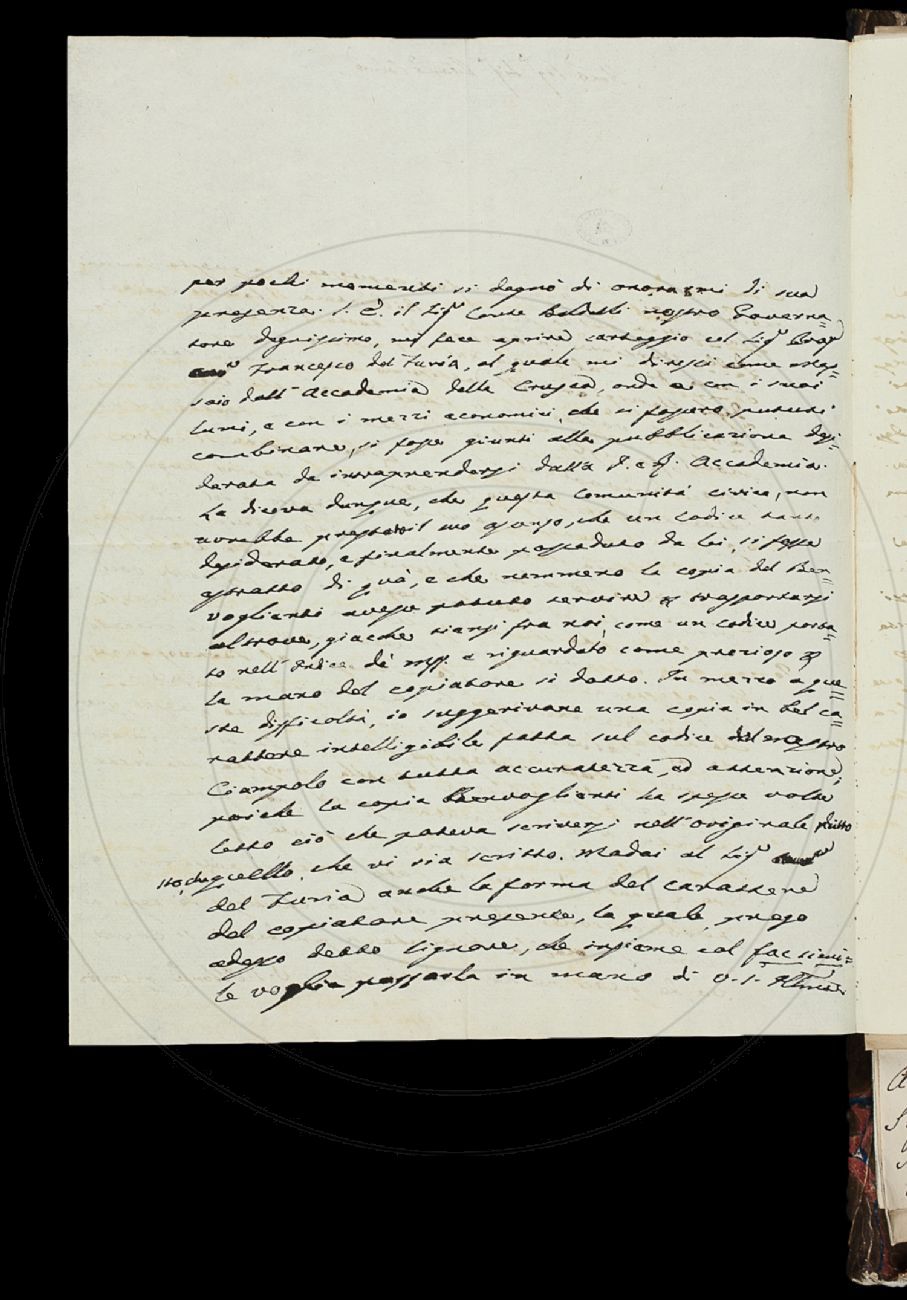 per pochi momenti si degnò di onorarmi di sua
presenza. S. E. il Sigr Conte Baldelli nostro Governa=
tore degnissimo, mi fece aprire carteggio col Sigr
Francesco del Furia, al quale mi diressi come
saio dell'Accademia della Crusca, onde e con i suoi
lumi, e con i mezzi economici, che si fossero potuti
combinare, si fosse giunti alla pubblicazione desi=
derata da intraprendersi dall'I. e R. Accademia.
Le diceva dunque, che questa Comunità civica, non
avrebbe prestato il suo assenso, che un Codice tanto
desiderato, e finalmente posseduto da lei, si fosse
estratto di quà, e che nemmeno la copia del Ben=
voglienti avesse potuto servire p trasportarsi
altrove, giacchè tiensi fra noi, come un codice porta=
to nell'Indice de' mss. e riguardato come prezioso p
la mano del copiatore sì dotto. In mezzo a que=
ste difficoltà, io suggerivane una copia in bel ca=
rattere intelligibile fatta sul codice del nostro
Ciampolo con tutta accuratezza, ed attenzione,
poichè la copia Benvoglienti ha spesse volte
letto ciò che poteva scriversi nell'originale piutto
sto, che quello, che vi sia scritto. Madai al Sigr
del Furia anche la forma del carattere
del copiatore presente, la quale prego
adesso detto Signore, che insieme col facsimi=
le voglia passarla in mano di V. S. Illma